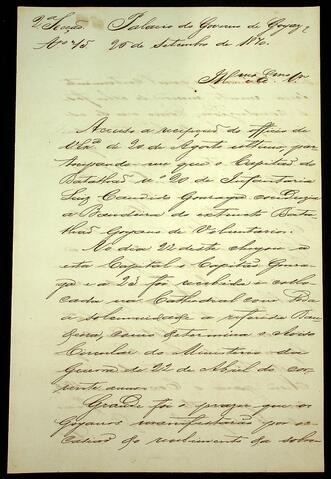 2ª Secção. Palacio do Governo de Goyaz,
Nº 75. 26 de Setembro de 1870.
Illmo. Exmo. Sr.
Accuso a recepção do officio de
V. Exa. de 20 de Agosto ultimo, par
ticipando-me que o Capitão do
Batalhão nº 20 de Infantaria
Luiz Candido Gonzaga conduzia
a Bandeira do extincto Bata
lhão Goyano de Voluntarios.
No dia 22 deste chegou a
esta Capital o Capitão Gonza
ga e a 25 foi recebida e collo
cada na Cathedral com toda
a solemnidade a referida Ban
deira, como determina o Aviso
Circular do Ministerio da
Guerra de 22 de Abril do cor
rente anno.
Grande foi o prazer que os
Goyanos manifestarão por oc
casião do recebimento da